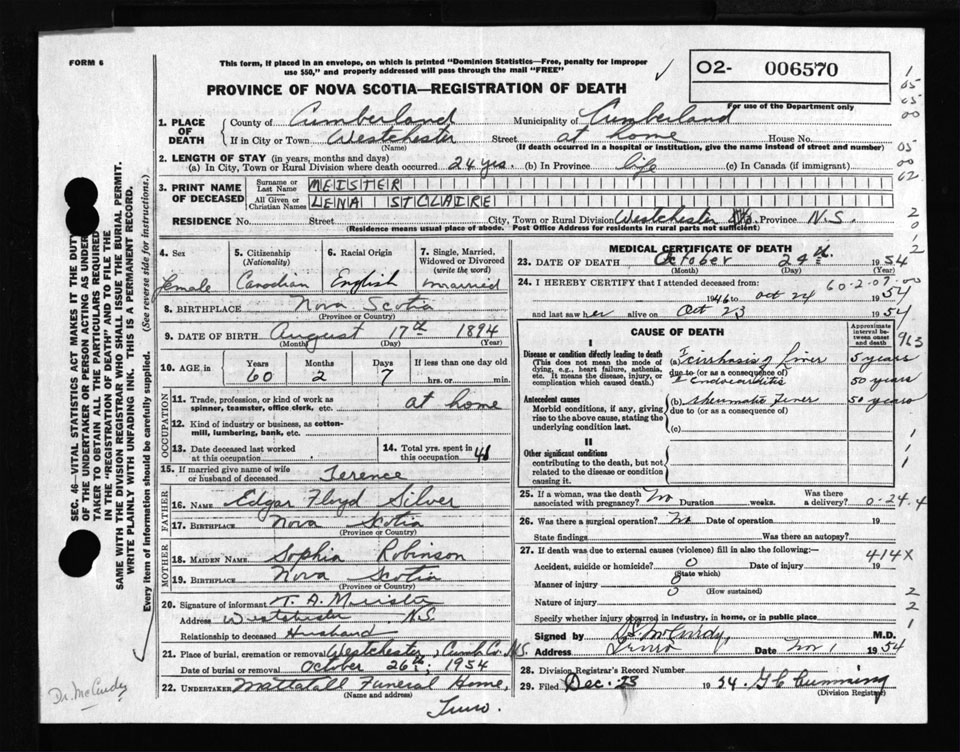 FORM 6
This form, if placed in an envelope, on which is printed "Dominion Statistics—Free, penalty for improper
use $50," and properly addressed will pass through the mail "FREE"
✓
O2- 006570
PROVINCE OF NOVA SCOTIA—REGISTRATION OF DEATH
For use of the Department only
1. PLACE OF DEATH
County of Cumberland Municipality of Cumberland
If in City or Town Westchester Street at home House No.
(Name) (If death occurred in a hospital or institution, give the name instead of street and number)
2. LENGTH OF STAY (in years, months and days)
(a) In City, Town or Rural Division where death occurred 24 yrs. (b) In Province life (c) In Canada (if immigrant)
3. PRINT NAME OF DECEASED
Surname or Last Name MEISTER
All Given or Christian Names LENA STCLAIRE
RESIDENCE No. Street City, Town or Rural Division Westchester Province N.S.
(Residence means usual place of abode. Post Office Address for residents in rural parts not sufficient)
4. Sex female
5. Citizenship (Nationality) Canadian
6. Racial Origin English
7. Single, Married, Widowed or Divorced (write the word) married
8. BIRTHPLACE Nova Scotia
(Province or Country)
9. DATE OF BIRTH August 17th 1894
(Month) (Day) (Year)
10. AGE in Years 60 Months 2 Days 7 If less than one day old hrs. or min.
OCCUPATION
11. Trade, profession, or kind of work as spinner, teamster, office clerk, etc. at home
12. Kind of industry or business, as cotton-mill, lumbering, bank, etc.
13. Date deceased last worked at this occupation
14. Total yrs. spent in this occupation 41
15. If married give name of wife or husband of deceased Terence
FATHER
16. NAME Edgar Floyd Silver
17. BIRTHPLACE Nova Scotia
(Province or Country)
MOTHER
18. MAIDEN NAME Sophia Robinson
19. BIRTHPLACE Nova Scotia
(Province or Country)
20. Signature of informant T. A. Meister
Address Westchester N.S.
Relationship to deceased Husband
21. Place of burial, cremation or removal Westchester, Cumb Co. N.S.
Date of burial or removal October 26th, 1954
22. UNDERTAKER Mattatall Funeral Home,
(Name and address)
Truro.
MEDICAL CERTIFICATE OF DEATH
23. DATE OF DEATH October 24th. 1954
(Month) (Day) (Year)
24. I HEREBY CERTIFY that I attended deceased from: 60-2-07-00
1946 to Oct 24 1954
and last saw her alive on Oct 23 1954
CAUSE OF DEATH
Approximate interval between onset and death
I
Disease or condition directly leading to death
(This does not mean the mode of dying, e.g., heart failure, asthenia, etc. It means the disease, injury, or complication which caused death.)
Cirrhosis of Liver 5 years
due to (or as a consequence of)
2 Endocarditis 50 years
Antecedent causes
Morbid conditions, if any, giving rise to the above cause, stating the underlying condition last.
(b) Rheumatic Fever 50 years
due to (or as a consequence of)
(c)
II
Other significant conditions
contributing to the death, but not related to the disease or condition causing it.
25. If a woman, was the death associated with pregnancy? No Duration weeks. Was there a delivery? 0-24-4
26. Was there a surgical operation? No Date of operation 19
State findings Was there an autopsy?
27. If death was due to external causes (violence) fill in also the following:— 414X
Accident, suicide or homicide? 0 Date of injury 19
(State which)
Manner of injury 0
(How sustained)
Nature of injury
Specify whether injury occurred in industry, in home, or in public place
Signed by McCurdy, M.D.
Address Truro Date Nov 1 1954
28. Division Registrar's Record Number
29. Filed Dec. 23 1954. G C Cumming
(Division Registrar)
SEC. 46 – VITAL STATISTICS ACT MAKES IT THE DUTY
OF THE UNDERTAKER OR PERSON ACTING AS UNDER-
TAKER TO OBTAIN ALL THE PARTICULARS REQUIRED
IN THE "REGISTRATION OF DEATH" AND TO FILE THE
SAME WITH THE DIVISION REGISTRAR WHO SHALL ISSUE THE BURIAL PERMIT.
WRITE PLAINLY WITH UNFADING INK. THIS IS A PERMANENT RECORD.
Every item of Information should be carefully supplied. (See reverse side for instructions.)
Dr. McCurdy